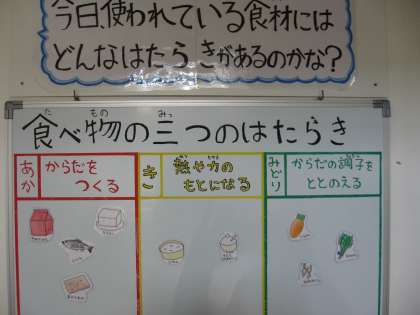 今日、使われている食材には
どんなはたらきがあるのかな?
食べ物の三つのはたらき
あか
からだを
つくる
きい
熱や力の
もとになる
みどり
からだの調子を
ととのえる